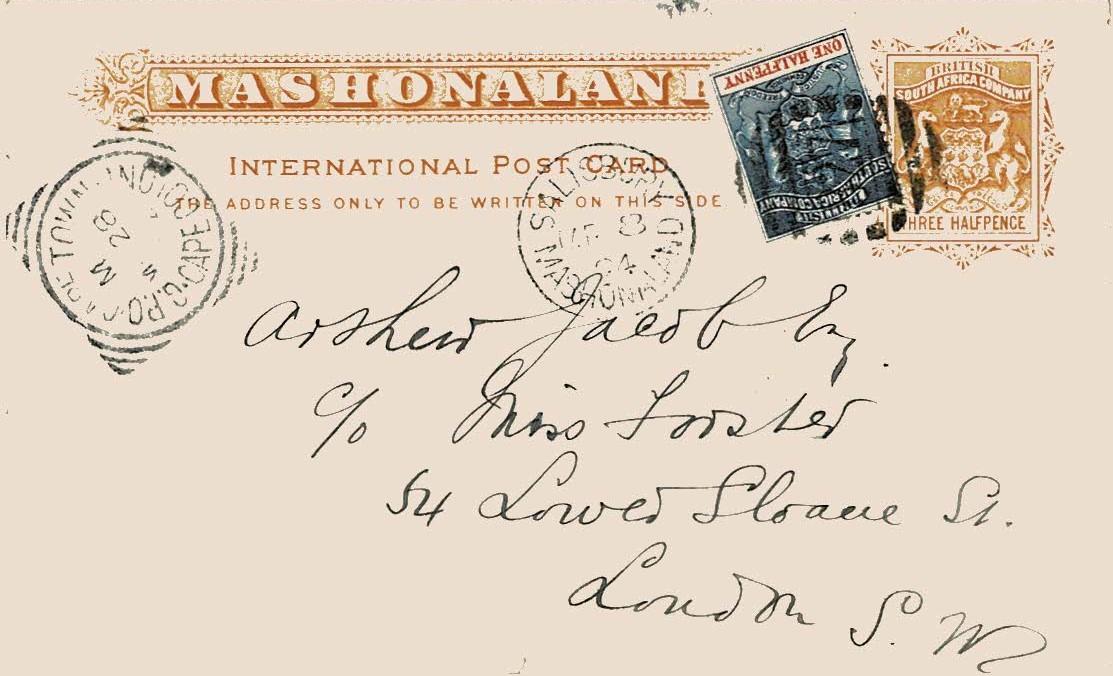 MASHONALAND
INTERNATIONAL POST CARD
THE ADDRESS ONLY TO BE WRITTEN ON THIS SIDE
ONE HALFPENNY
SOUTH AFRICA COMPANY
BRITISH
SOUTH AFRICA COMPANY
THREE HALFPENCE
SALISBURY
8
94
MASHONALAND
G.P.O. CAPE TOWN
M
28
CAPE COLONY
Jacob Esq.
c/o Miss Forster
54 Lower Sloane St.
London S.W.